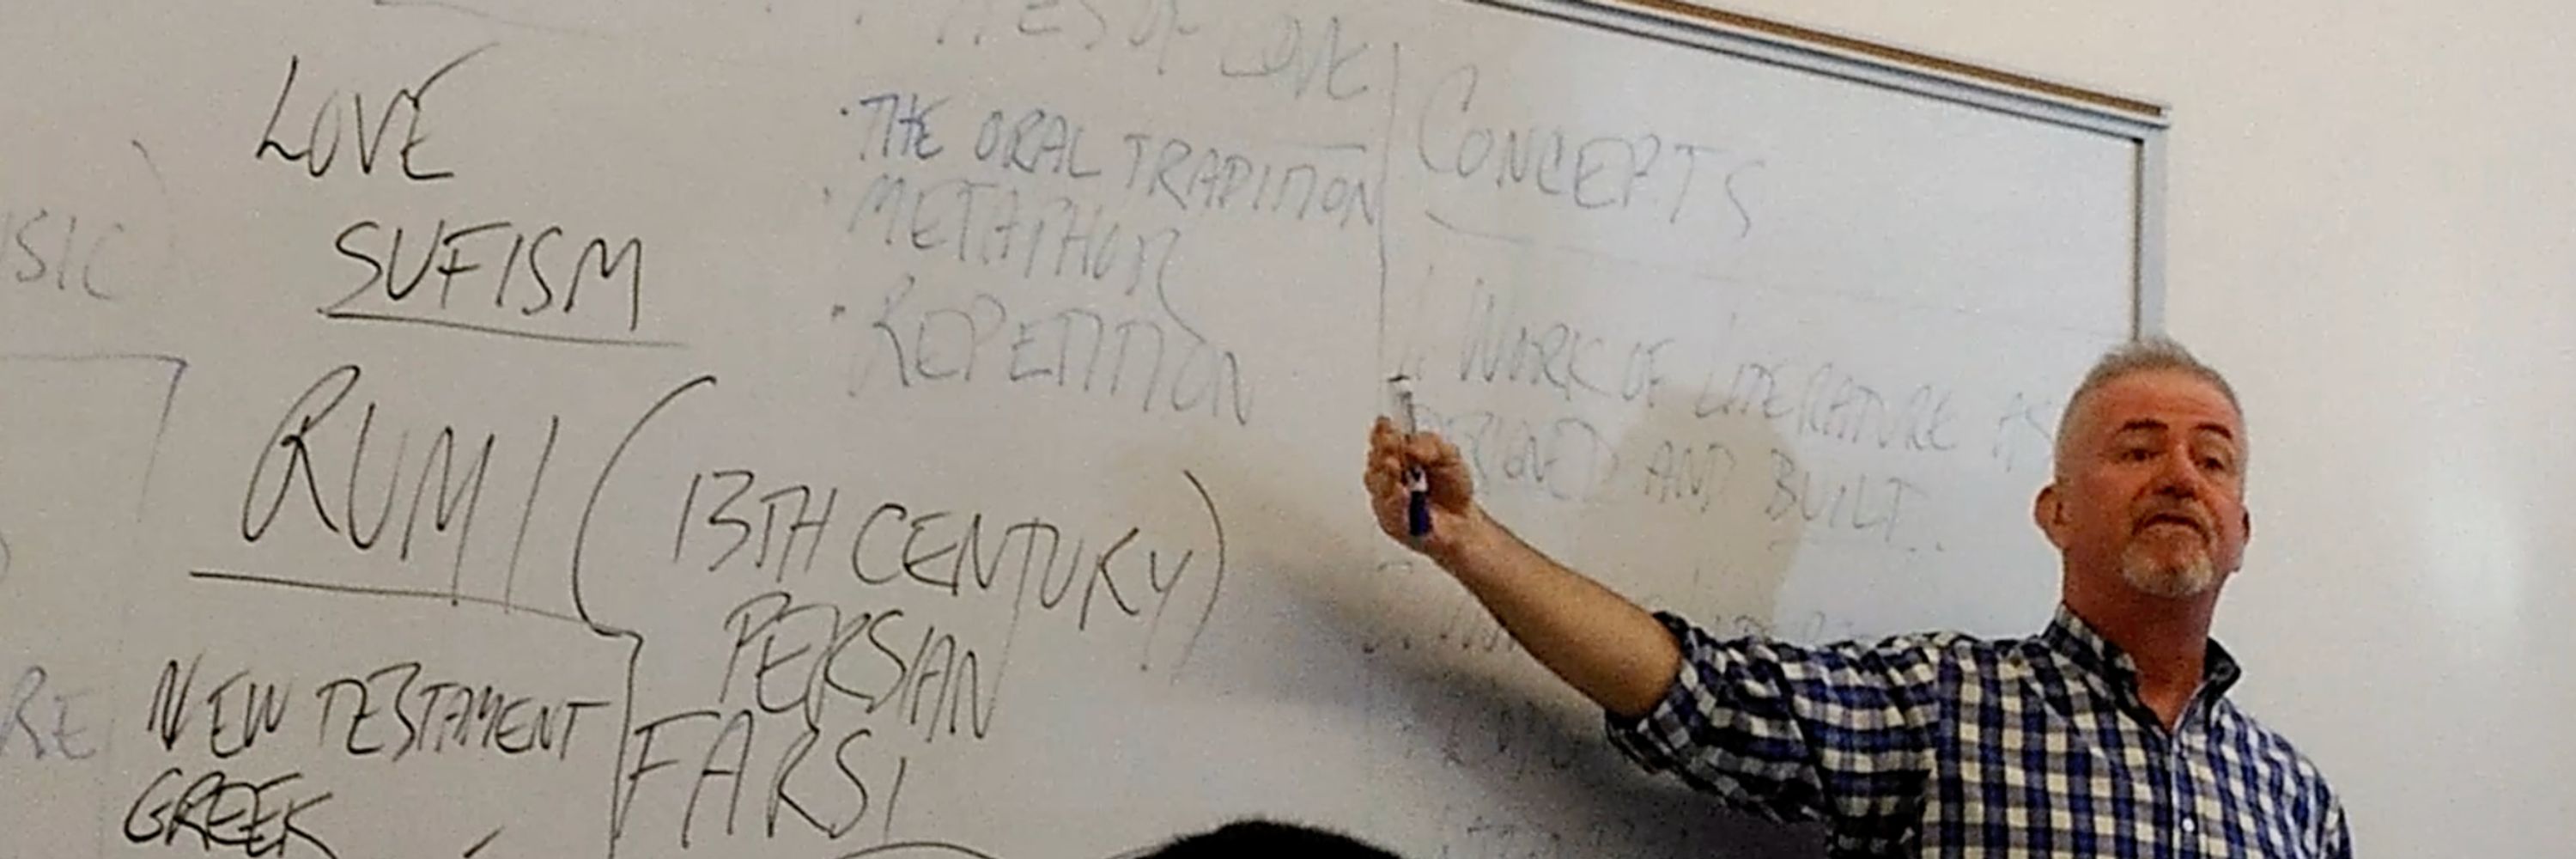 LOVE
SUFISM
RUMI (13TH CENTURY)
PERSIAN
FARSI
NEW TESTAMENT
GREEK
OF LOVE
· THE ORAL TRADITION
· METAPHOR
· REPETITION
CONCEPTS
1. WORK OF LITERATURE AS
DESIGNED AND BUILT.